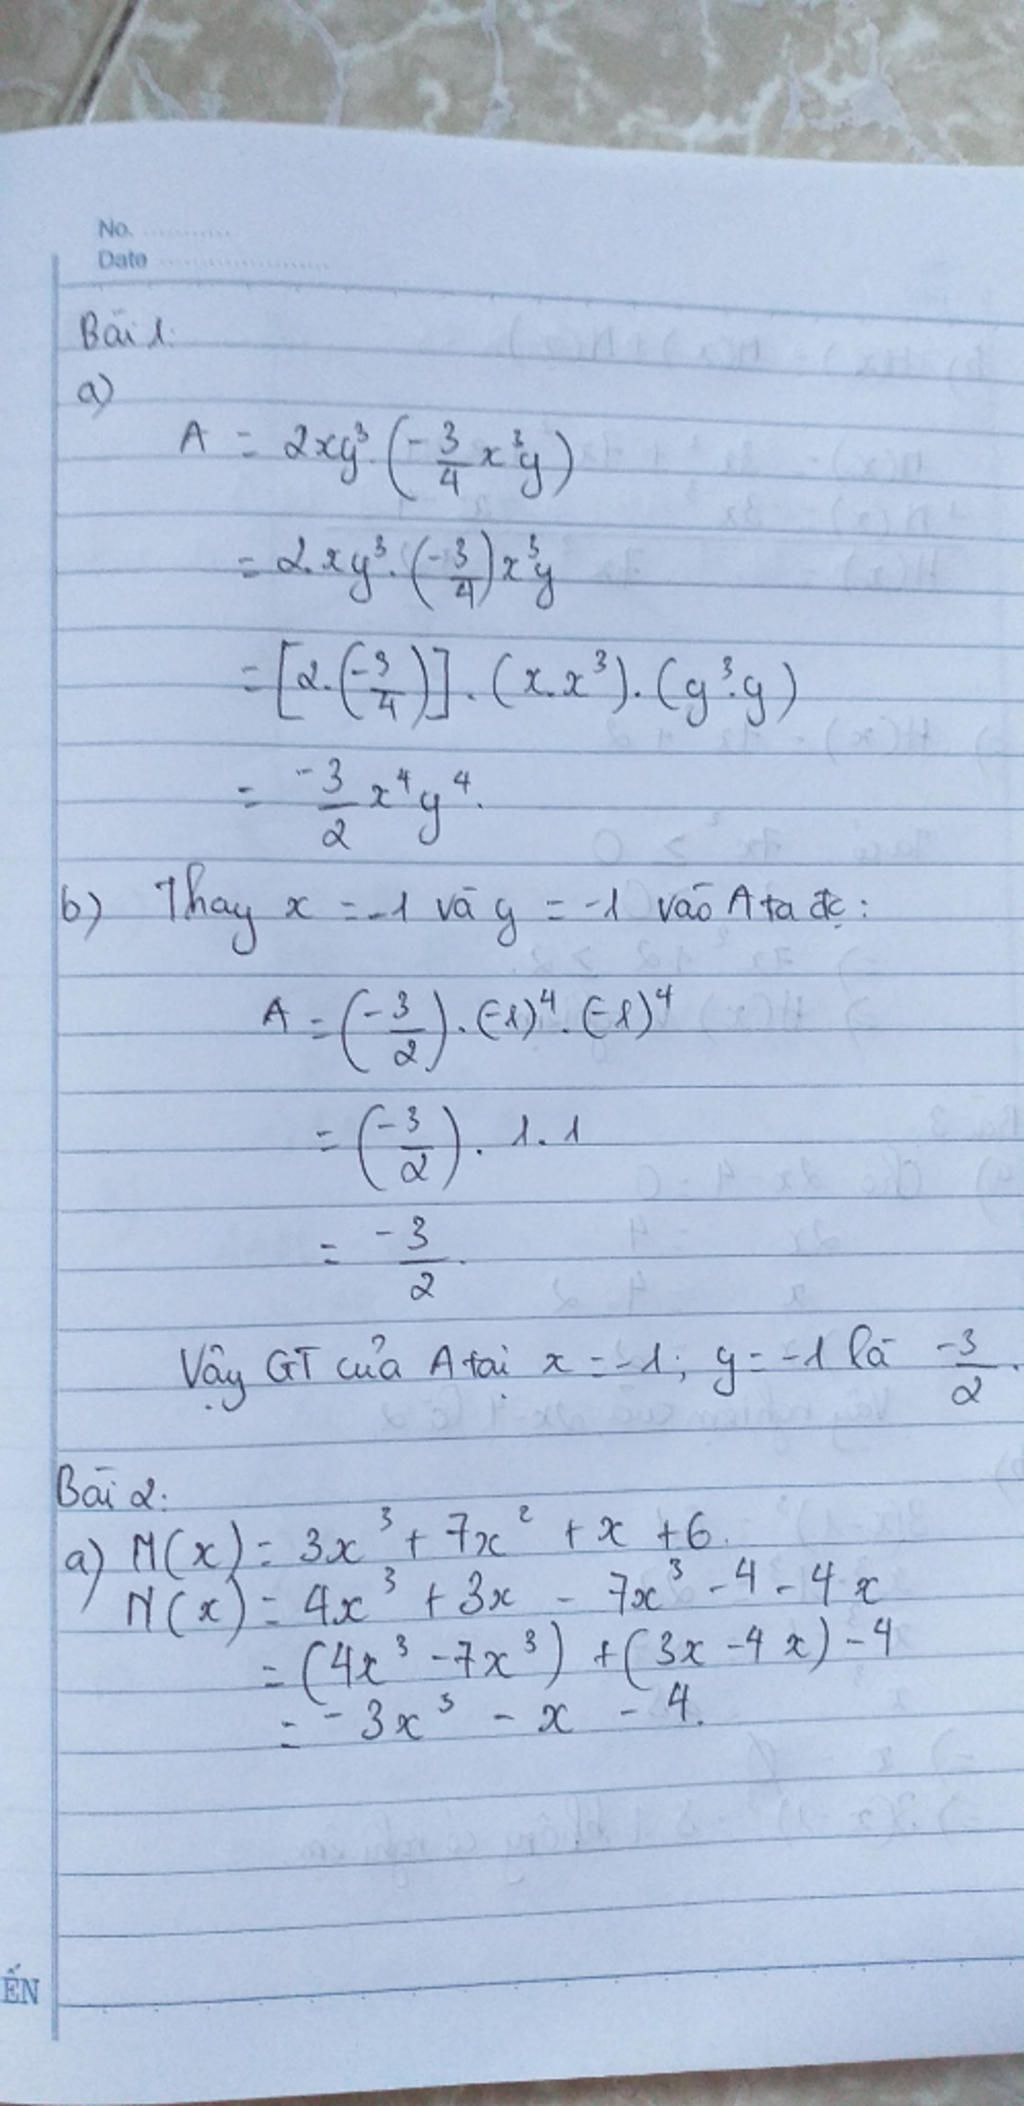 No.
Date
Bài 1:
a)
A = 2xy³.(-3/4 x³y)
= 2.xy³.(-3/4)x³y
= [2.(-3/4)].(x.x³).(y³.y)
= -3/2 x⁴y⁴.
b) Thay x = -1 và y = -1 vào A ta đc:
A = (-3/2).(-1)⁴.(-1)⁴
= (-3/2).1.1
= -3/2.
Vậy GT của A tại x = -1; y = -1 là -3/2.
Bài 2:
a) M(x) = 3x³ + 7x² + x + 6.
N(x) = 4x³ + 3x - 7x³ - 4 - 4x
= (4x³ - 7x³) + (3x - 4x) - 4
= -3x³ - x - 4.
ẾN